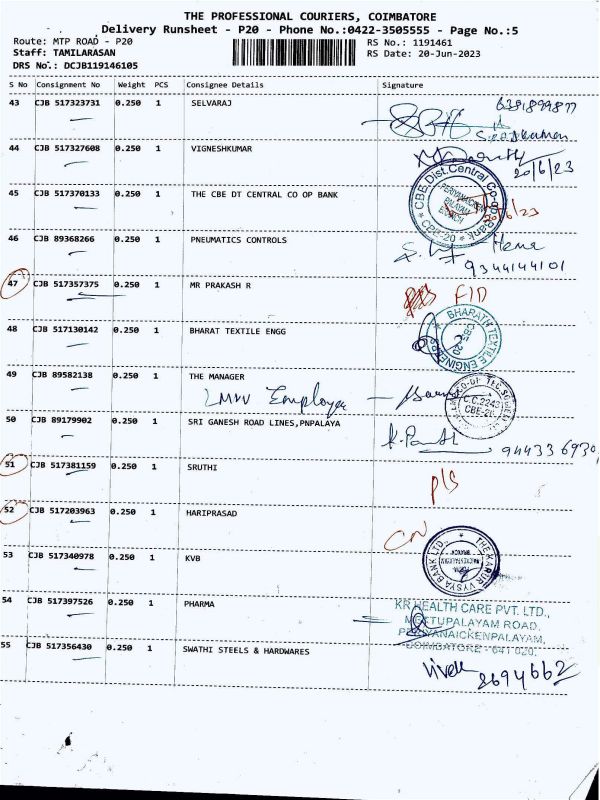 THE PROFESSIONAL COURIERS, COIMBATORE
Delivery Runsheet - P20 - Phone No.:0422-3505555 - Page No.:5
Route: MTP ROAD - P20 RS No.: 1191461
Staff: TAMILARASAN RS Date: 20-Jun-2023
DRS No.: DCJB119146105
S No Consignment No Weight PCS Consignee Details Signature
43 CJB 517323731 0.250 1 SELVARAJ
44 CJB 517327608 0.250 1 VIGNESHKUMAR
20/6/23
45 CJB 517370133 0.250 1 THE CBE DT CENTRAL CO OP BANK
CBE.Dist.Central Co-op Bank
CBE-20
46 CJB 89368266 0.250 1 PNEUMATICS CONTROLS
Hema
9344144101
47 CJB 517357375 0.250 1 MR PRAKASH R
48 CJB 517130142 0.250 1 BHARAT TEXTILE ENGG
BHARATH TEXTILE ENGINEERS
CBE-20
49 CJB 89582138 0.250 1 THE MANAGER
LMW Employee
C.C.2243
CBE-20
50 CJB 89179902 0.250 1 SRI GANESH ROAD LINES,PNPALAYA
51 CJB 517381159 0.250 1 SRUTHI
52 CJB 517203963 0.250 1 HARIPRASAD
CN
53 CJB 517340978 0.250 1 KVB
THE KARUR VYSYA BANK LTD.
54 CJB 517397526 0.250 1 PHARMA
KR HEALTH CARE PVT. LTD.,
METTUPALAYAM ROAD,
PERIYANAICKENPALAYAM,
COIMBATORE - 641 020.
55 CJB 517356430 0.250 1 SWATHI STEELS & HARDWARES
8694662